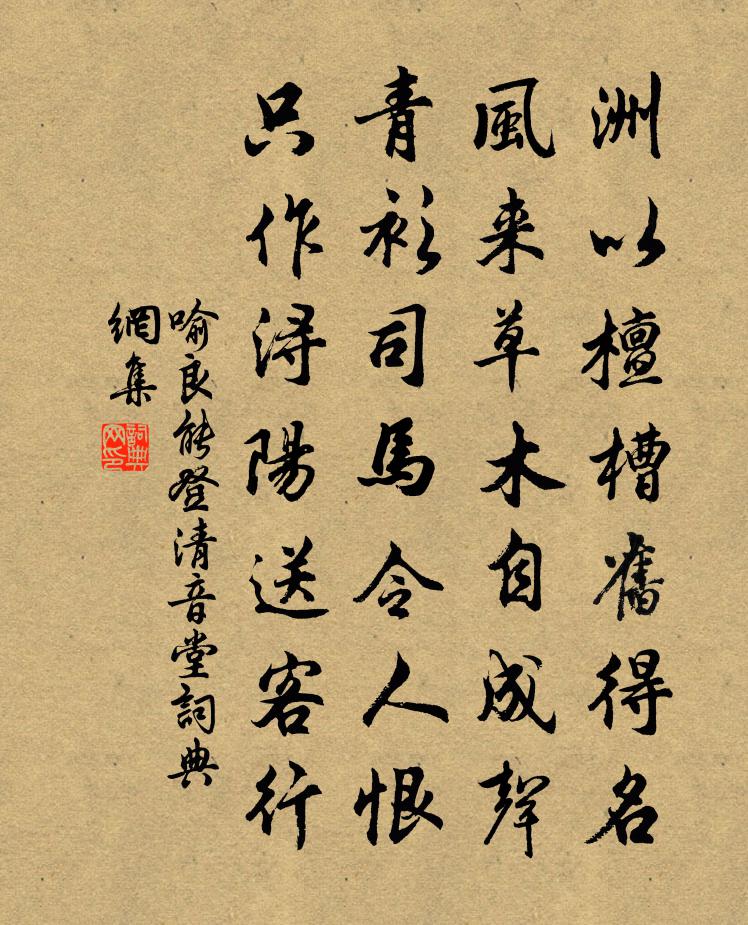 洲以檀槽舊得名
風来草木自成聲
青衫司馬令人恨
只作潯陽送客行
喻良能登清音堂詞典
網集
詞典
网印